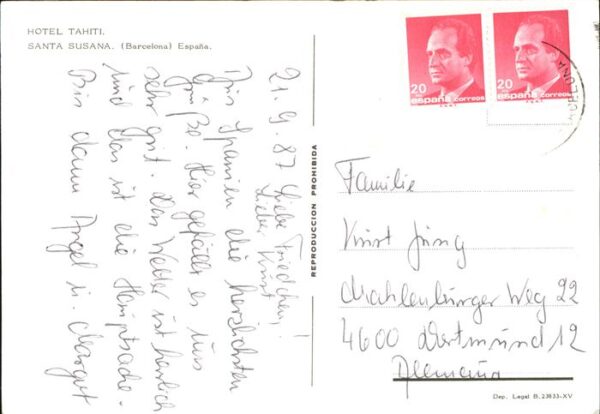 HOTEL TAHITI.
SANTA SUSANA. (Barcelona) España.
21. 9. 87 Liebe Friedchen,!
Lieber Kurt
Aus Spanien die herzlichsten
Grüße. Hier gefällt es uns
sehr gut. Das Wetter ist herrlich
und das ist die Hauptsache.
Bis dann Angel u. Margret
REPRODUCCION PROHIBIDA
20
españa correos
20
españa correos
BARCELONA
Familie
Kurt Jung
Mahlenburger Weg 22
4600 Dortmund 12
Alemania
Dep. Legal B. 23833-XV